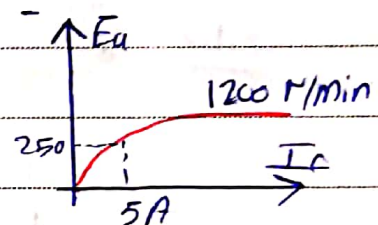 Ea
1200 r/min
250
If
5A